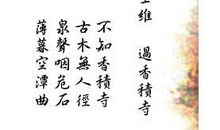 王維　過香積寺
不知香積寺
古木無人徑
泉聲咽危石
薄暮空潭曲